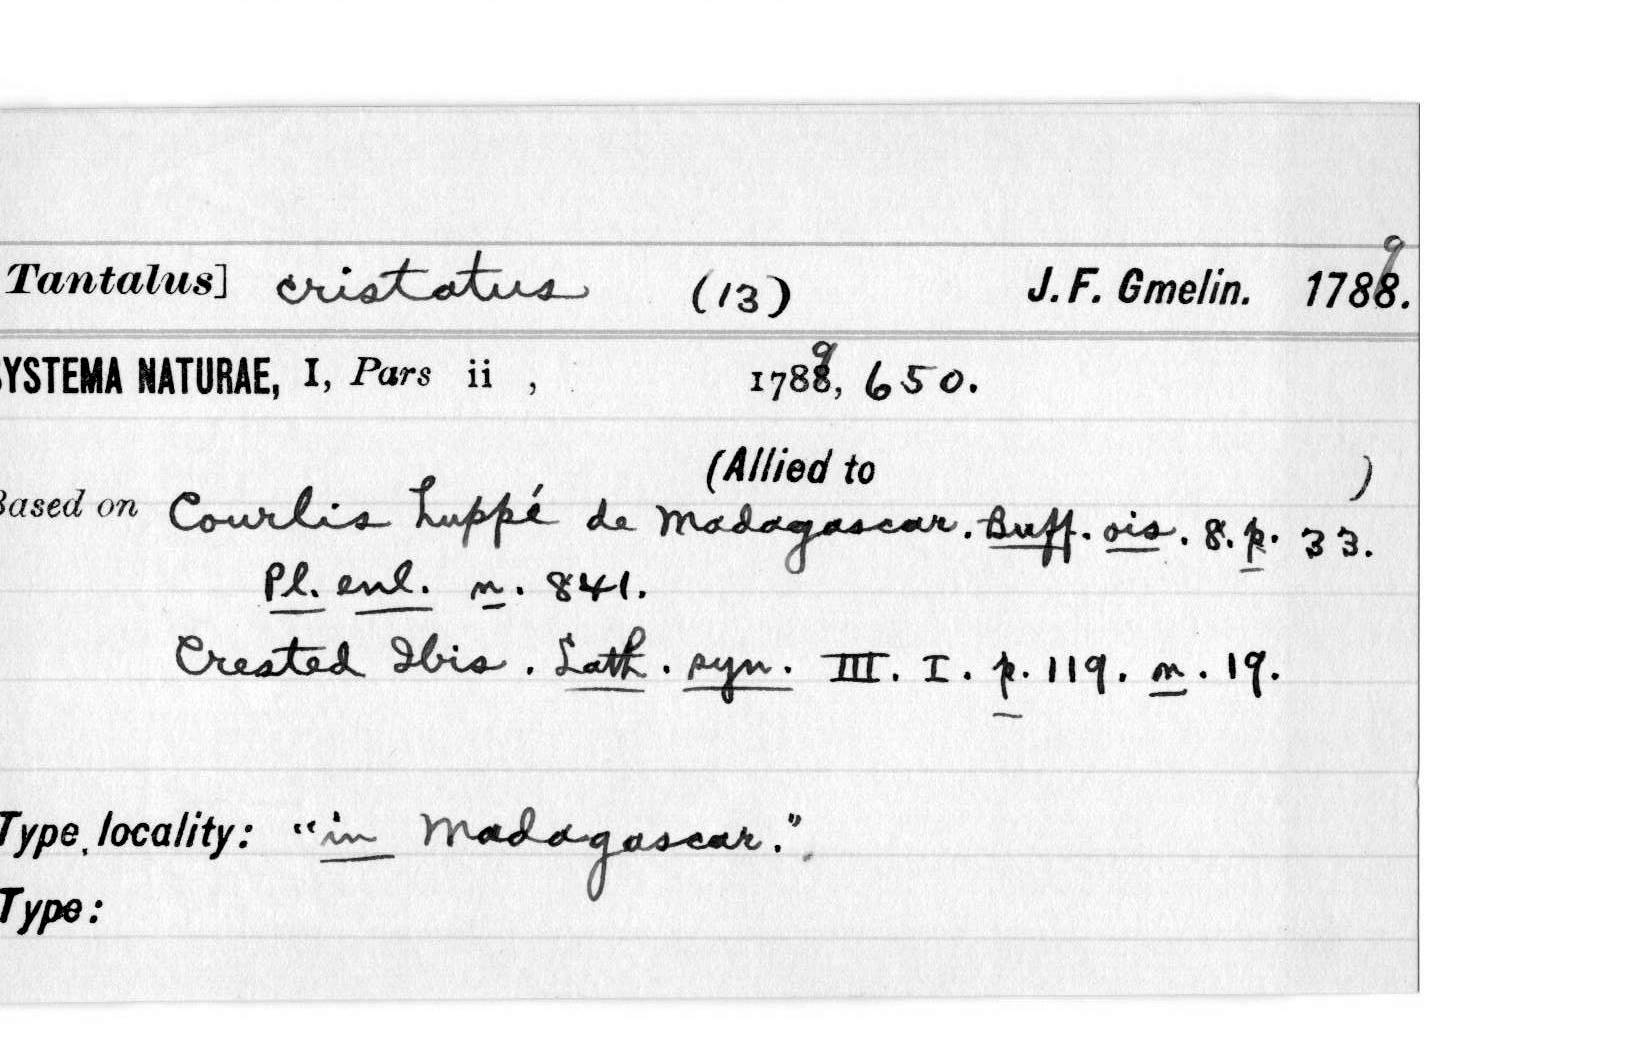 Tantalus] cristatus (13) J. F. Gmelin. 1789.
SYSTEMA NATURAE, I, Pars ii , 1789, 650.
(Allied to )
Based on Courlis huppé de Madagascar. Buff. ois. 8. p. 33.
Pl. enl. n. 841.
Crested Ibis. Lath. syn. III. I. p. 119. n. 19.
Type locality: "in Madagascar."
Type: